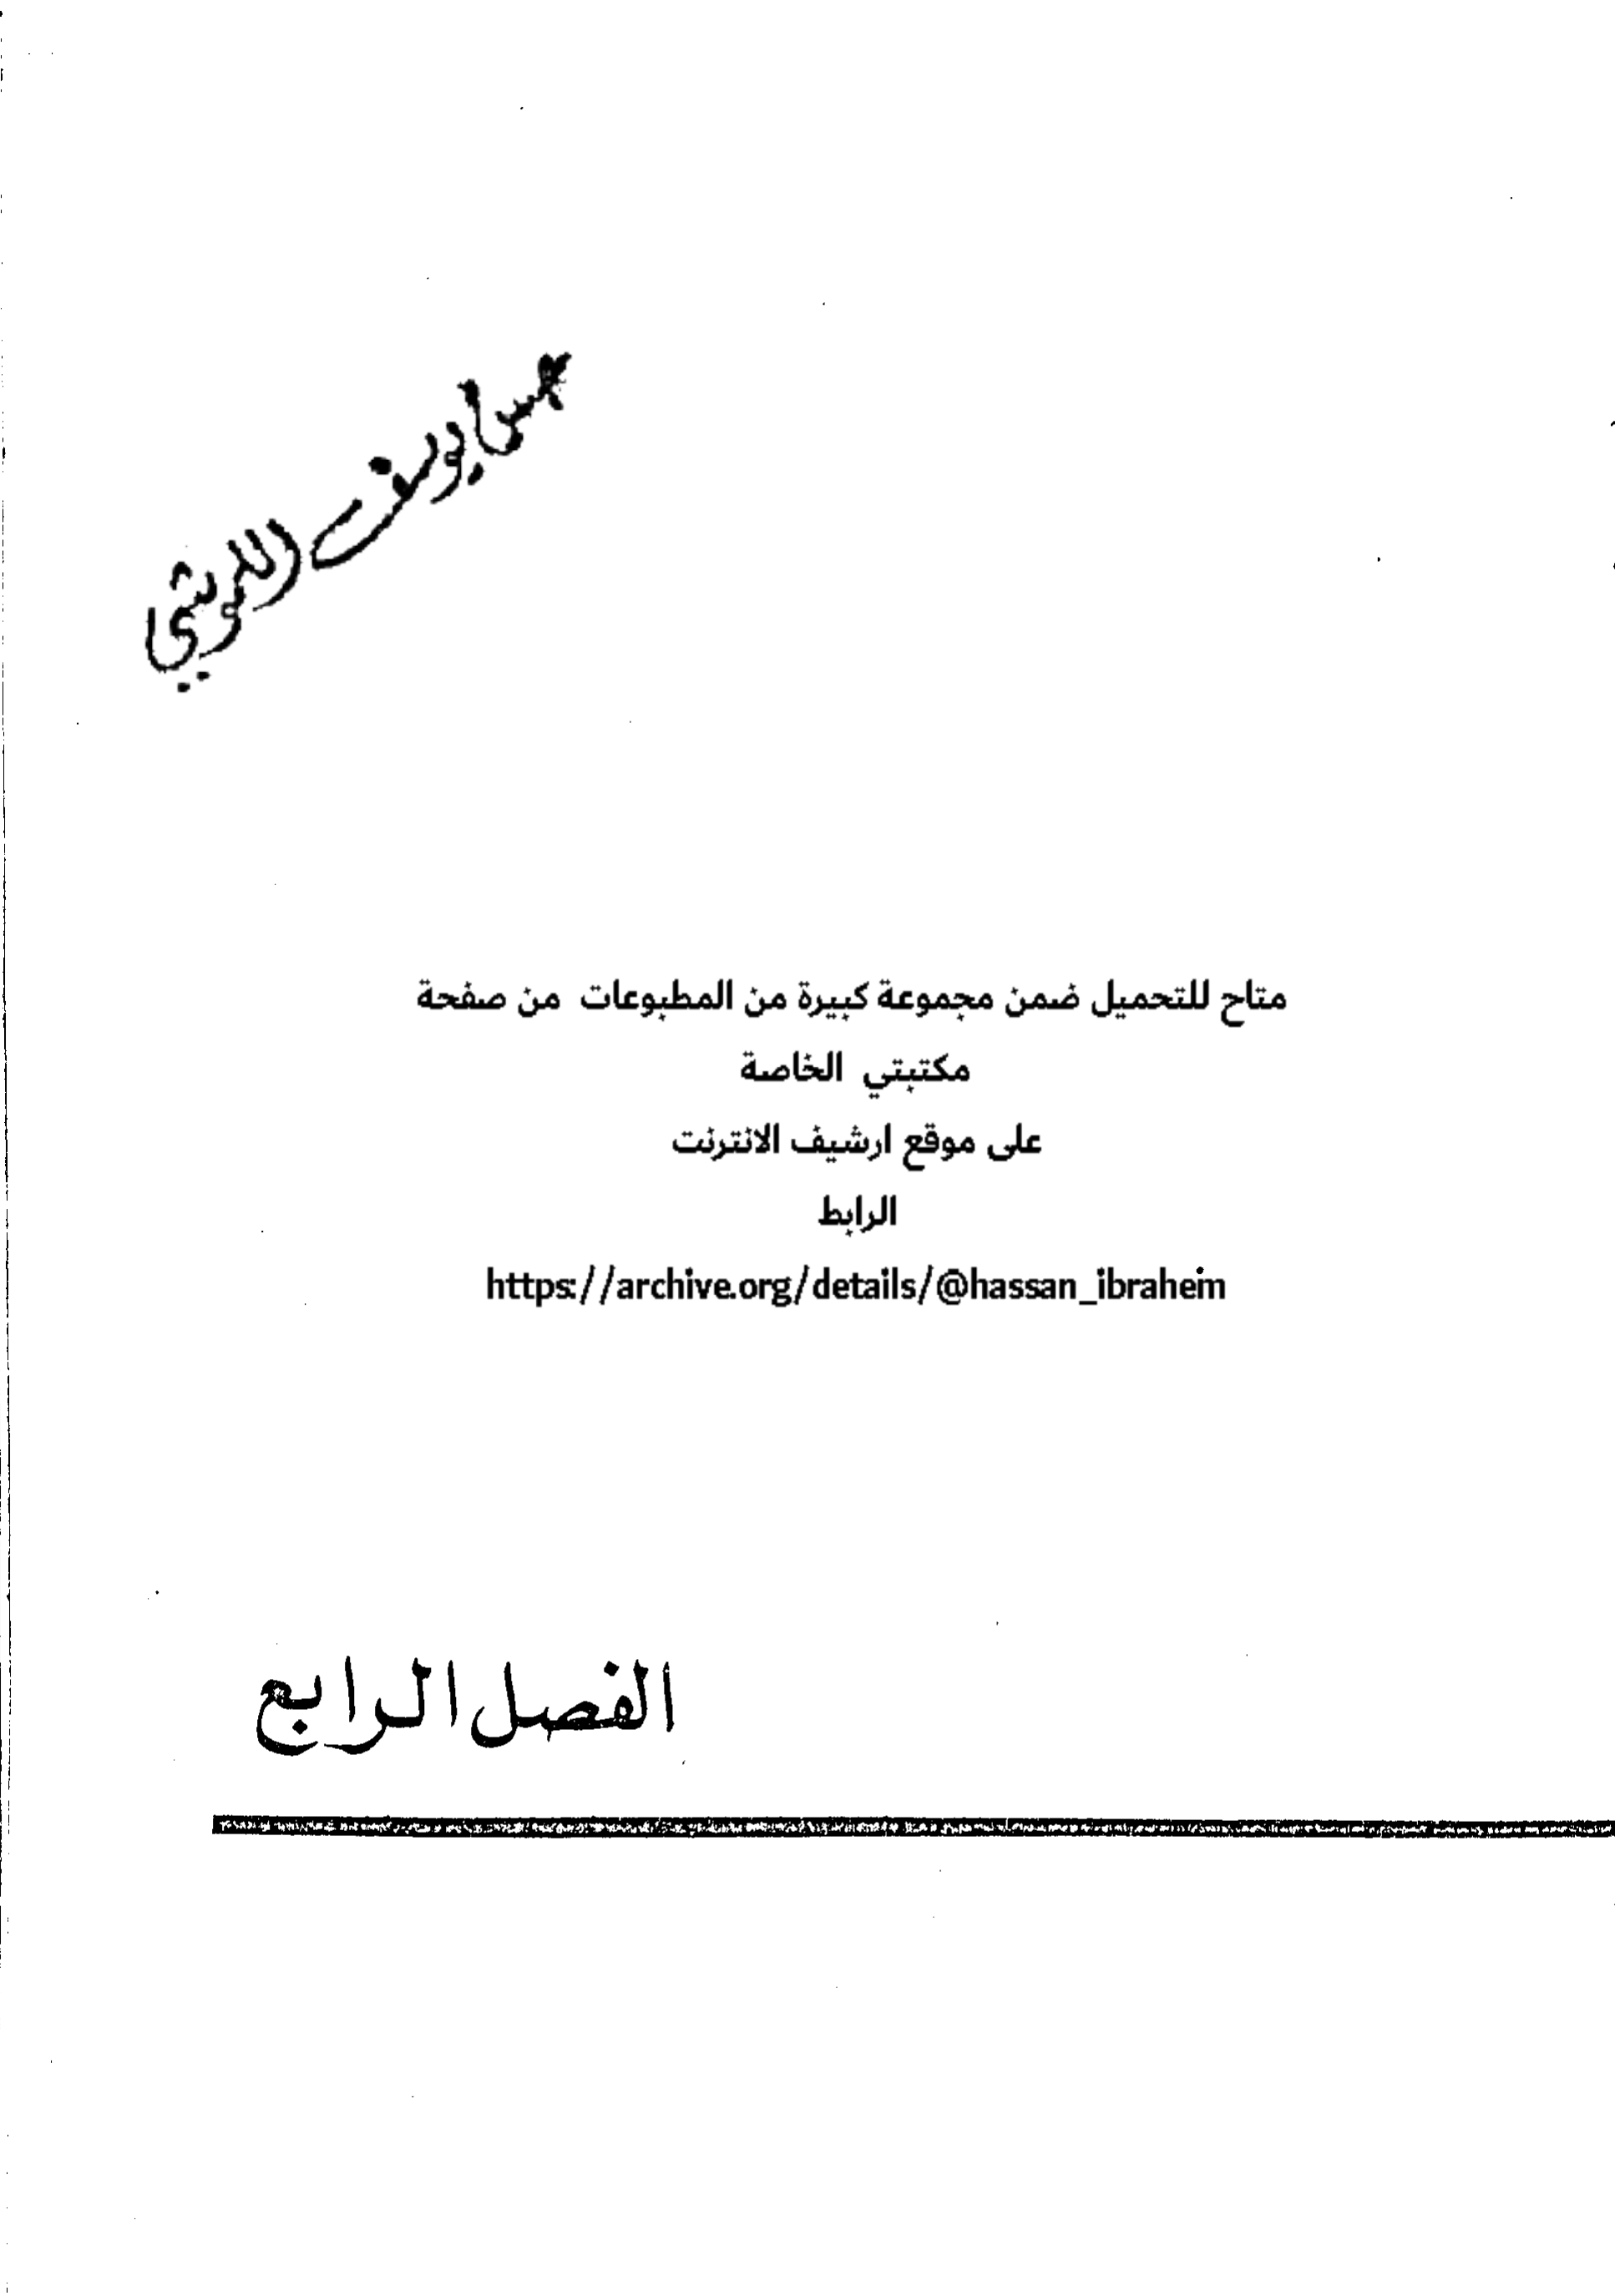 يوسف
متاح للتحميل ضمن مجموعة كبيرة من المطبوعات من صفحة
مكتبتي الخاصة
على موقع ارشيف الانترنت
الرابط
https://archive.org/details/@hassan_ibraheim
الفصل الرابع